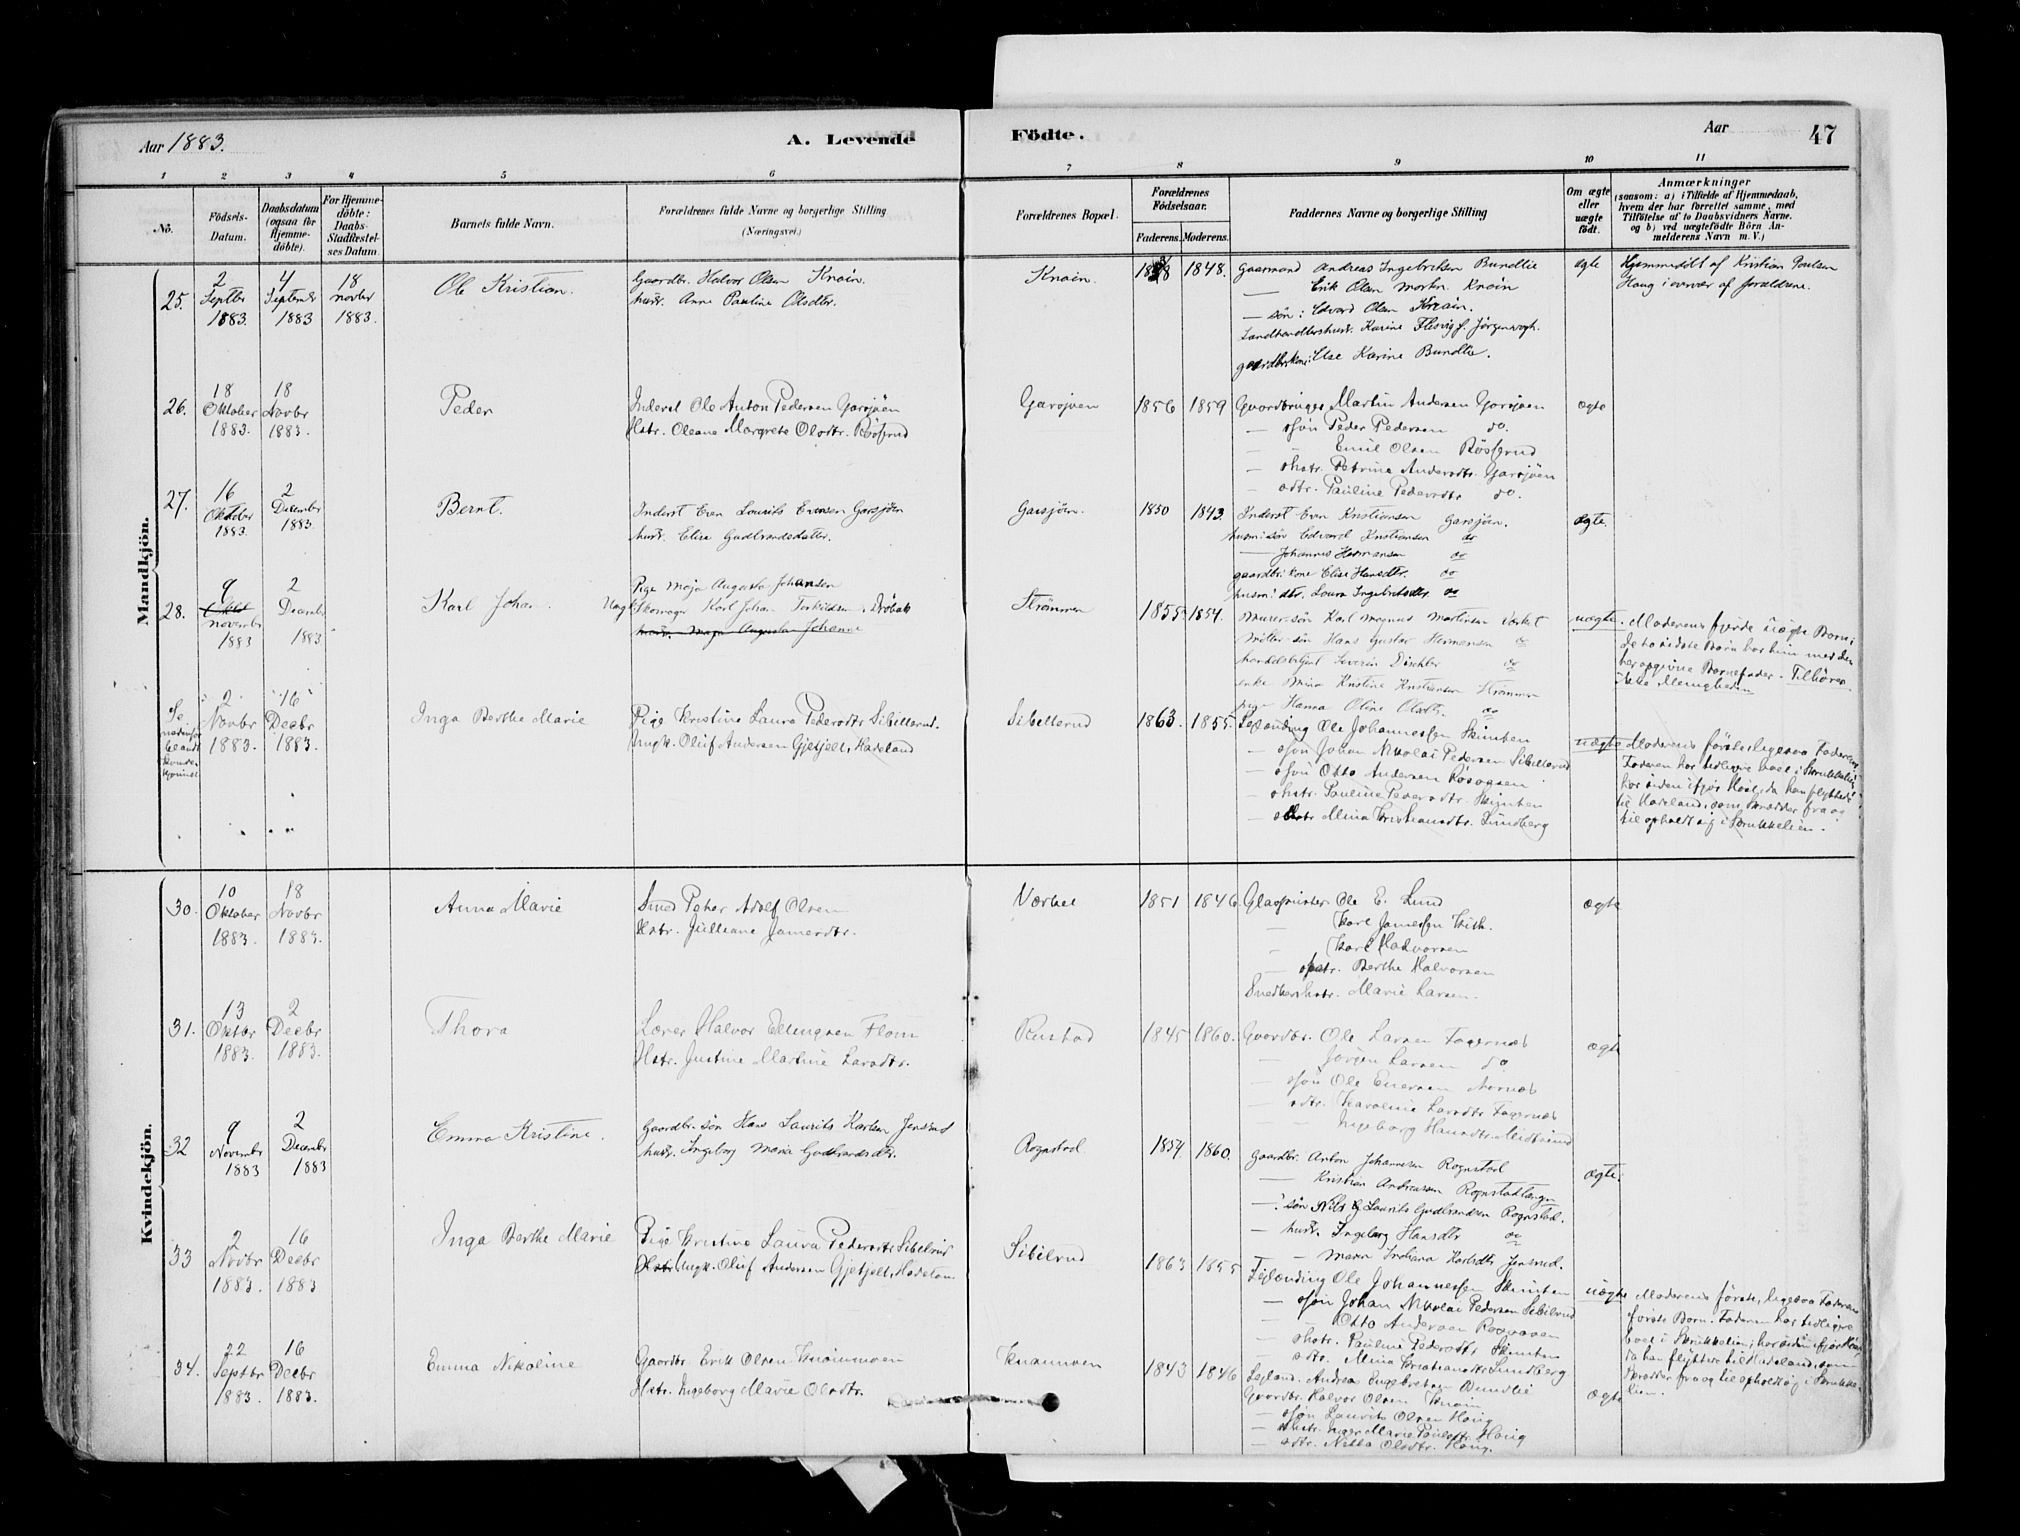 Aar 1883.
A. Levende
Födte.
Aar
47
1 2 3 4 5 6 7 8 9 10 11
No.
Födsels-Datum.
Daabsdatum (ogsaa för Hjemme-döbte).
For Hjemme-döbte: Daabs-Stadfæstel-ses Datum
Barnets fulde Navn.
Forældrenes fulde Navne og borgerlige Stilling
(Næringsvei.)
Forældrenes Bopæl.
Forældrenes Födselsaar.
Faderens. Moderens.
Faddernes Navne og borgerlige Stilling
Om ægte eller uægte födt.
Anmærkninger
(saasom: a) i Tilfælde af Hjemmedaab, hvem der har forrettet samme, med Tilföielse af to Daabsvidners Navne, og b) ved uægtefödte Börn An-melderens Navn m. V.)
Mandkjön.
25.
2 Septbr 1883.
4 September 1883
18 novbr 1883.
Ole Kristian.
Gaardbr. Halvor Olsen Knoin.
hustr. Anne Pauline Olsdtr.
Knoin.
1848.
gaarmand Andreas Ingebriksen Bundlie
— Erik Olsen Knoin
— sön: Edvard Olsen Knoin.
Landhandlershustr. Karine
gaardbr.kone: Else Karine Bundlie.
ægte
Hjemmedöbt af Kristian Paulsen
Haug i overvær af forældrene.
26.
18 Oktober 1883.
18 Novbr 1883.
Peder
Inderst Ole Anton Pedersen Garsjöen
Hstr. Oleane Margrete Olsdtr. Rösgrud
Garsjöen
1856 1859
Gaardbruger Martin Andersen Garsjöen
— sön Peder Pedersen do.
— Emil Olsen Rösgrud
— shstr. Petrine Andersdtr. Garsjöen
— sdtr. Pauline Pedersdtr do.
ægte
27.
16 Oktober 1883
2 December 1883
Bernt.
Inderst Even Lourits Evensen Garsjöen
hustr. Elise Gudbrandsdatter.
Garsjöen.
1850 1843.
Inderst Even Kristiansen Garsjöen.
husm: sön Edvard Kristiansen do
— Johannes Hermansen do
gaardbr: kone Elise Hansdtr. do
husm: dtr. Laura Ingebretsdtr do
ægte.
28.
9 november 1883
2 December 1883
Karl Johan.
Pige Maja Augusta Johansen
Ungk. Skomager Karl Johan Torkildsen, Dröbak
hustr. Maja Augusta Johanne
Strömmen
1855 1854.
Murer-sön Karl Magnus Martinsen Værket
Möller-sön Hans Gustav Hermansen do
handelsbetjent Severin Dischler do
enke Mina Kristine Kristiansen Strömmen
pige Hanna Oline Olsdtr. do
uægte.
Moderens fjerde uægte Barn;
de to sidste Börn har hun med den
her opgivne Barnefader. Tilhörer
ikke Menigheden
2 Novbr 1883.
16 Decbr 1883.
Inga Berthe Marie
Pige Kristine Laura Pedersdtr Sibillerud.
Ungk. Oluf Andersen Gjetjelt, Hadeland
Sibillerud
1863. 1855.
Leilænding Ole Johannessen Skinten
— sön Johan Nikolai Pedersen Sibillerud
— sön Otto Andersen
— shstr. Pauline Pedersdtr. Skinten
— Mina Kristiansdtr. Lundberg
uægte
Moderens förste, ligesaa Faderens.
Faderen har tidligere boet i Skrukkelien;
har siden ifjor Höst, da han flyttede
til Hadeland, som Skrædder fra og
til opholdt sig i Skrukkelien.
Kvindekjön.
30.
10 Oktober 1883.
18 Novbr 1883.
Anna Marie
Smed Peter Adolf Olsen
Hstr. Julliane Jamesdtr.
Værket
1851 1846
Glaspuster Ole E. Lund
— Karl Jamessen
— Karl Halvorsen
— shstr. Berthe Halvorsen
Snedkershstr. Marie Larsen.
ægte
31.
13 Oktbr 1883.
2 Decbr 1883.
Thora
Lærer Halvor Ellingsen Flom
Hstr. Justine Martine Larsdtr.
Rustad
1845 1860.
Gaardbr. Ole Larsen Fagernæs
— Jörgen Larsen do
— sön Ole Enersen Nornæs
— sdtr. Karoline Larsdtr Fagernæs
— Ingeborg Hansdtr. Midtsund
ægte
32
9 November 1883
2 December 1883
Emma Kristine.
gaardbr. sön Hans Laurits Karlsen Jensrud
hustr. Ingeborg Maria Gudbrandsdtr.
Rognstad
1854 1860.
gaardbr. Anton Johannesen Rognstad
— Kristian Andreassen Rognstadtangen
— sön Nils Laurits Gudbrandsen Rognstad.
— hustr. Ingeborg Hansdtr do
— Maren Indiana Karlsdtr Jensrud.
ægte.
33
2 Novbr 1883.
16 Decbr 1883
Inga Berthe Marie
Pige Kristine Laura Pedersdtr Sibilrud
Ungk. Oluf Andersen Gjetjelt, Hadeland
Sibilrud
1863 1855
Leilænding Ole Johannessen Skinten
— sön Johan Nikolai Pedersen Sibilrud
— Otto Andersen
— shstr. Pauline Pedersdtr Skinten
— sdtr. Mina Kristiansdtr Lundberg
uægte
Moderens förste, ligesaa Faderens
förste Barn. Faderen har tidligere
boet i Skrukkelien; har siden ifjor Höst,
da han flyttede til Hadeland, som
Skrædder fra og til opholdt sig i Skrukke-
lien.
34.
22 Septbr 1883.
16 Decbr 1883.
Emma Nikoline
Gaardbr. Erik Olsen Knoinmoen
Hstr. Ingeborg Marie Olsdtr.
Knoinmoen
1843 1846
Leilænd. Andreas Ingebretsen Bundlie
Gaardbr. Halvor Olsen Knoin
— sön Laurits Olsen Haug
— shstr. Inger Marie Paulsdtr. Haug
— sdtr. Netta Olsdtr. Haug.
ægte